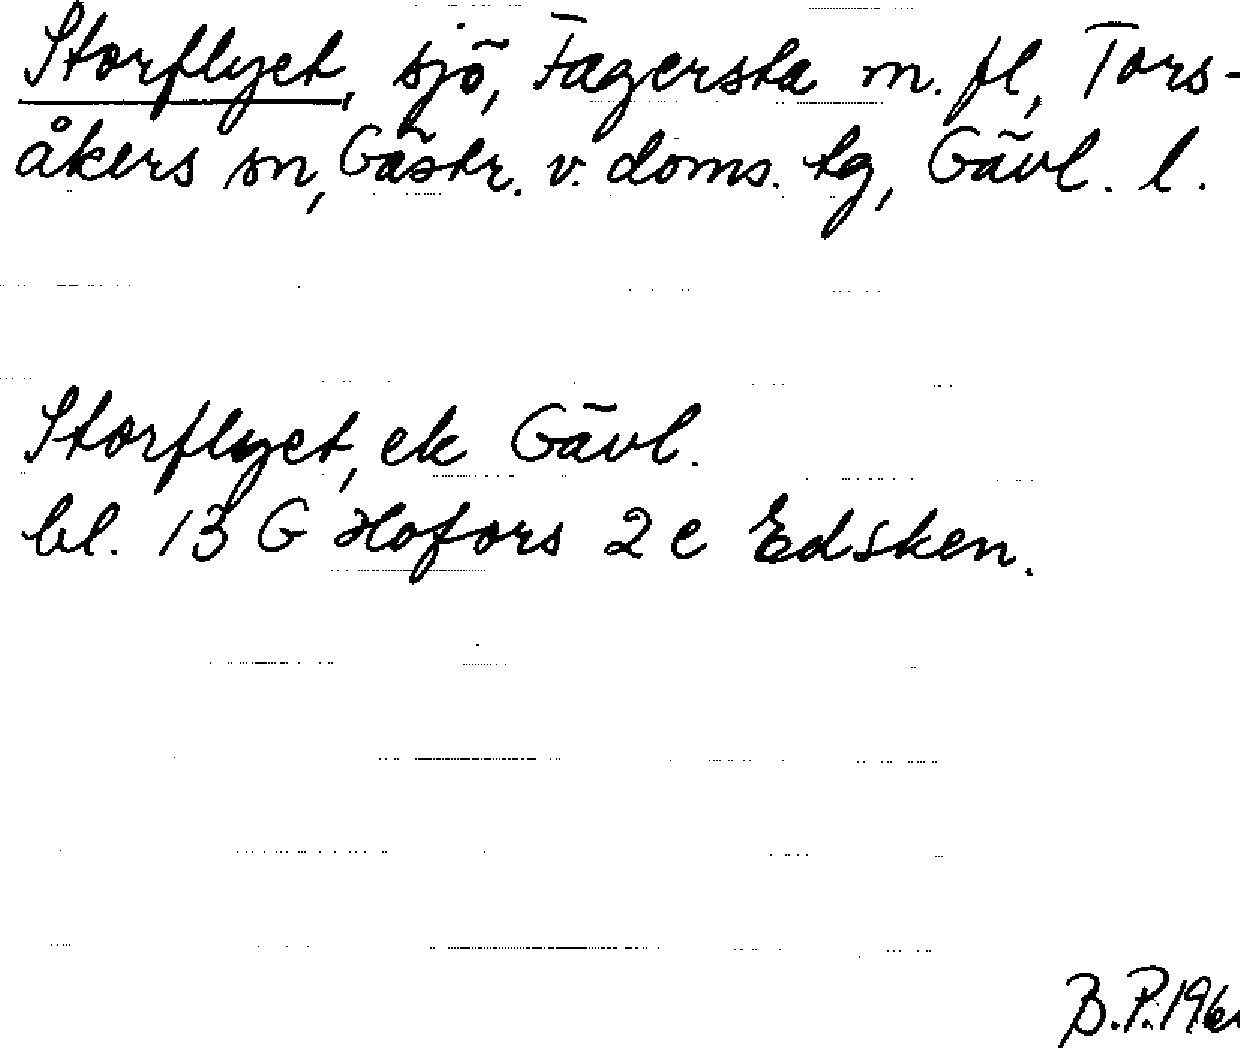 Storflyet, sjö, Fagersta m. fl, Tors-
åkers sn, Gästr. v. doms. tg, Gävl. l.
Storflyet, ek Gävl.
bl. 13 G Hofors 2 e Edsken.
B.P.